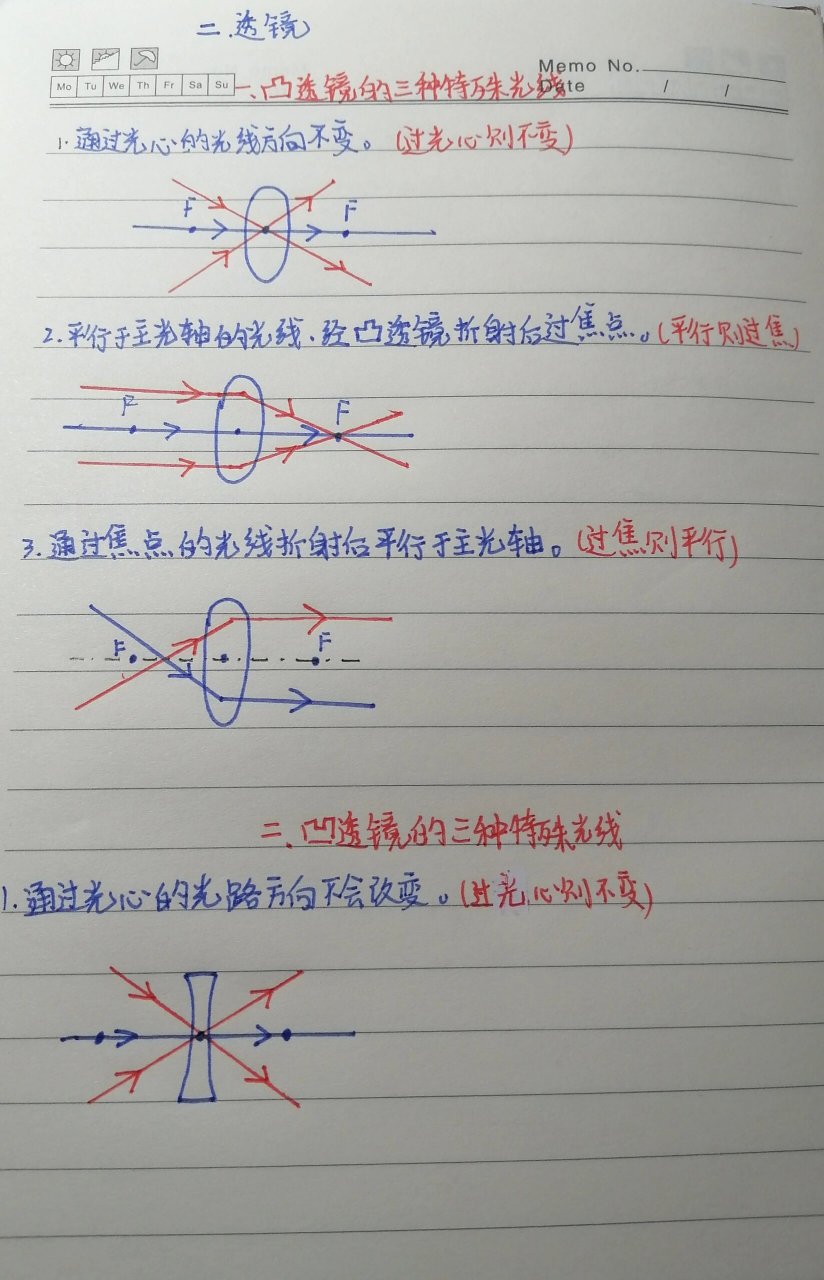 二.透镜
Memo No.
Mo Tu We Th Fr Sa Su
Date / /
一、凸透镜的三种特殊光线
1.通过光心的光线方向不变。(过光心则不变)
F F
2.平行于主光轴的光线.经凸透镜折射后过焦点。(平行则过焦)
F F
3.通过焦点的光线折射后平行于主光轴。(过焦则平行)
F F
二、凹透镜的三种特殊光线
1.通过光心的光路方向不会改变。(过光心则不变)